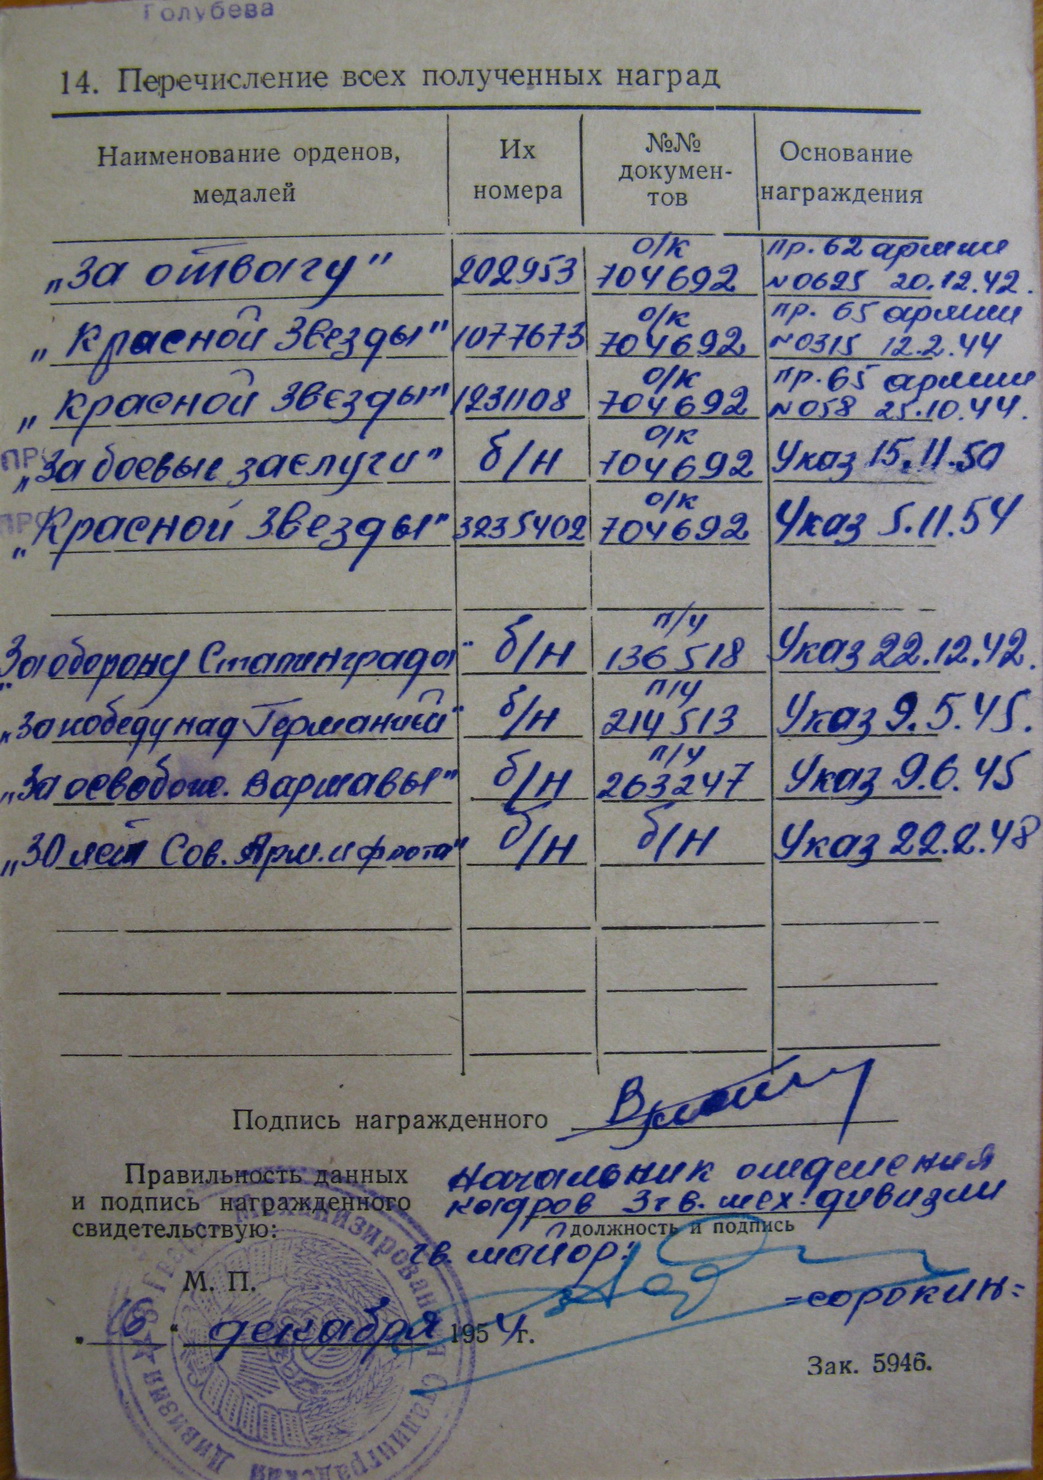 Голубева
14. Перечисление всех полученных наград
Наименование орденов, медалей
Их номера
№№ докумен-тов
Основание награждения
„За отвагу" 202953 о/к 704692 пр. 62 армии №0625 20.12.42.
„Красной Звезды" 1077673 о/к 704692 пр. 65 армии №0315 12.2.44
„Красной Звезды" 1231108 о/к 704692 пр. 65 армии №058 25.10.44.
ПРО
„За боевые заслуги" б/н о/к 704692 Указ 15.11.50
ПРО
„Красной Звезды" 3235402 о/к 704692 Указ 5.11.54
„За оборону Сталинграда" б/н п/у 136518 Указ 22.12.42.
„За победу над Германией" б/н п/у 214513 Указ 9.5.45.
„За освобож. Варшавы" б/н п/у 263247 Указ 9.6.45
„30 лет Сов. Арм. и флота" б/н б/н Указ 22.2.48
Подпись награжденного
Правильность данных
и подпись награжденного
свидетельствую:
Начальник отделения
кадров 3 гв. мех. дивизии
должность и подпись
гв. майор:
=сорокин=
М. П.
„16" декабря 1954 г.
Зак. 5946.
Механизированная Сталинградская Дивизия